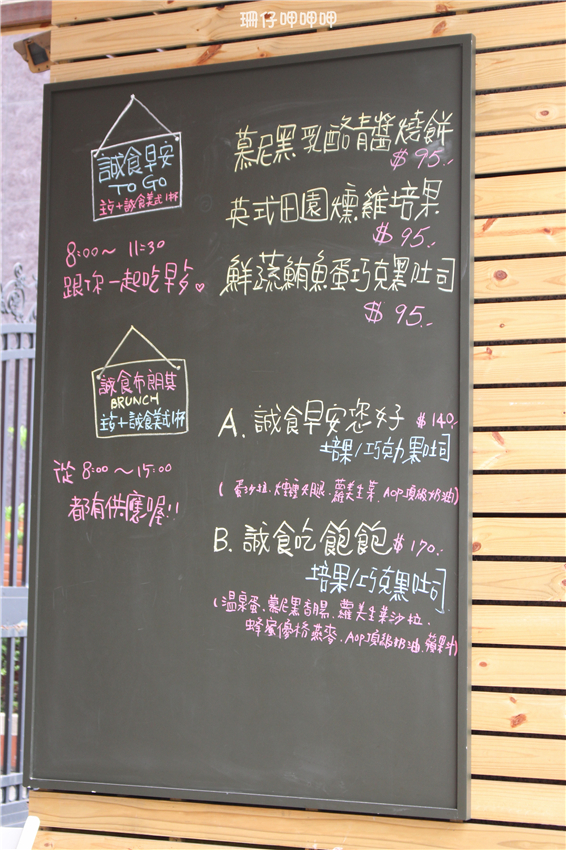 珊仔呷呷呷
誠食早安
TO GO
主站+誠食美式1杯
8:00～11:30
跟你一起吃早ㄘ♥
慕尼黑乳酪青醬燒餅
$95.-
英式田園燻雞培果
$95.-
鮮蔬鮪魚蛋巧克黑吐司
$95.-
誠食布朗其
BRUNCH
主站+誠食美式1杯
從 8:00～15:00
都有供應喔!!
A. 誠食早安您好 $140.-
培果/巧克力黑吐司
(蛋沙拉、燻雞火腿、蘿美生菜、AOP頂級奶油)
B. 誠食吃飽飽 $170.-
培果/巧克黑吐司
(溫泉蛋、慕尼黑香腸、蘿美生菜沙拉、
蜂蜜優格燕麥、AOP頂級奶油、蘋果汁)